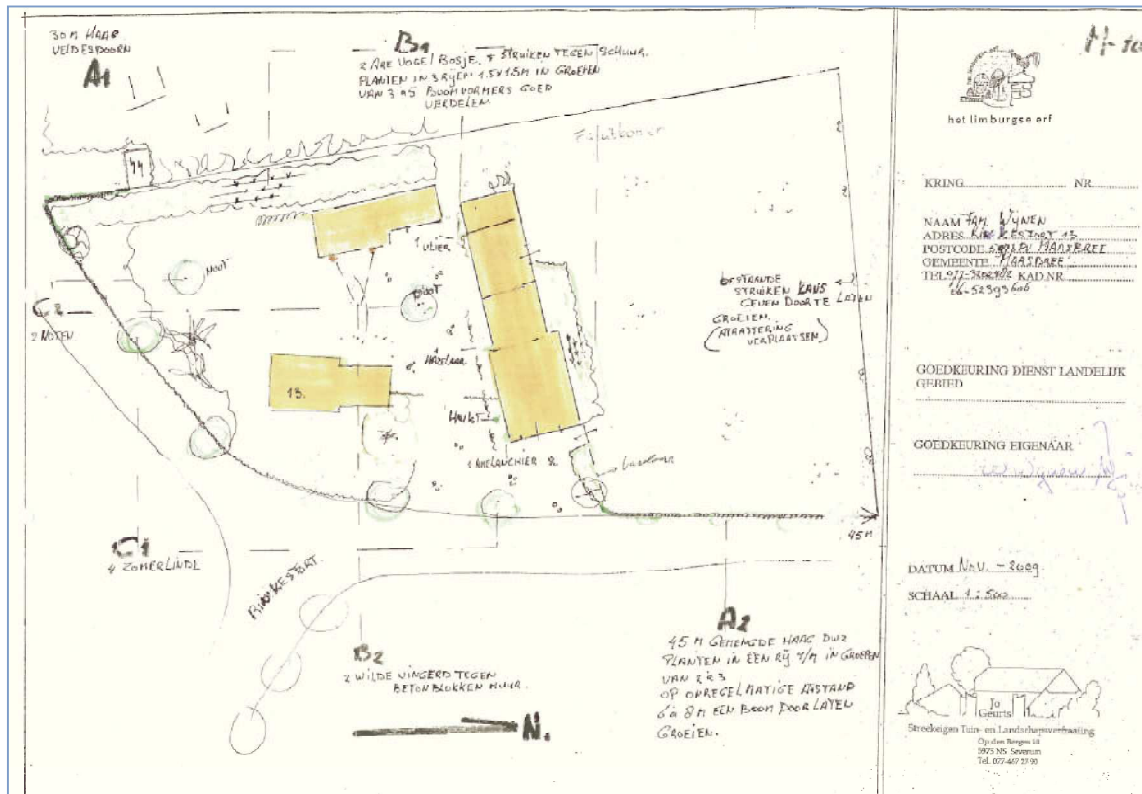 30 M HAAG
VELDESDOORN
A1
B1
2 ARE VOGELBOSJE & STRUIKEN TEGEN SCHUUR.
PLANTEN IN 3 RIJEN 1.5X1.5M IN GROEPEN
VAN 3 A 5 BOOMVORMERS GOED
VERDELEN
44
NOOT
C2
2 NOTEN
1 VLIER
NOOT
HAZELAAR
13.
HULST
1 AMELANCHIER
BESTAANDE
STRUIKEN KANS
GEVEN DOOR TE LATEN
GROEIEN.
VERPLAATSEN)
45 M
C1
4 ZOMERLINDE
RINKESFORT
B2
2 WILDE WINGERD TEGEN
BETONBLOKKEN MUUR.
N.
A2
45 M GEMENGDE HAAG DUS
PLANTEN IN EEN RIJ 4/M IN GROEPEN
VAN 2 A 3
OP ONREGELMATIGE AFSTAND
6 A 8 M EEN BOOM DOOR LATEN
GROEIEN.
het limburgse erf
KRING NR.
NAAM FAM. WIJNEN
ADRES 13
POSTCODE MAASBREE
GEMEENTE MAASBREE
TEL KAD.NR.
GOEDKEURING DIENST LANDELIJK
GEBIED
GOEDKEURING EIGENAAR
DATUM NOV. - 2009
SCHAAL 1:500
Jo
Geurts
Streekeigen Tuin- en Landschapsverfraaiing
Op den Bergen 18
5975 NS Sevenum
Tel. 077-467 27 90